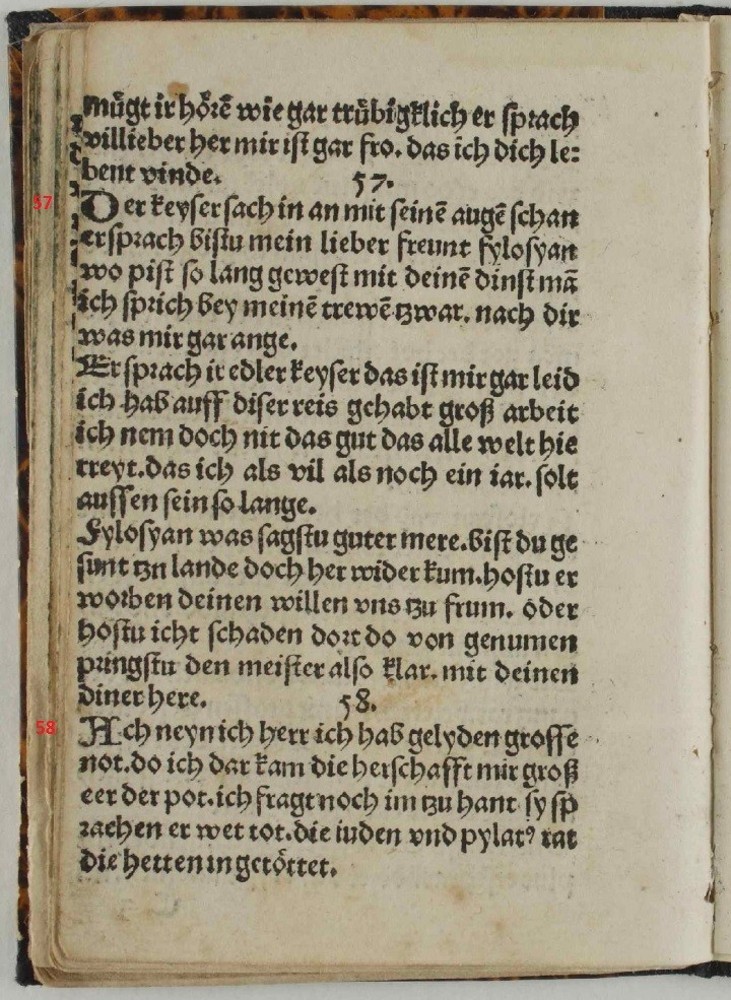 mügt ir hörē wie gar trübigklich er sprach
villieber her mir ist gar fro. das ich dich le⸗
bent vinde.
57.
57
Der keyser sach in an mit seinē augē schan
er sprach bistu mein lieber freunt fylosyan
wo pist so lang gewest mit deinē dinst mā
ich sprich bey meinē trewē tzwar. nach dir
was mir gar ange.
Er sprach ir edler keyser das ist mir gar leid
ich hab auff diser reis gehabt groß arbeit
ich nem doch nit das gut das alle welt hie
treyt. das ich als vil als noch ein iar. solt
aussen sein so lange.
Fylosyan was sagstu guter mere. bist du ge
sunt tzn lande doch her wider kum. hostu er
worben deinen willen vns tzu frum. oder
hostu icht schaden dort do von genumen
pringstu den meister also klar. mit deinen
diner here.
58.
58
Ach neyn ich herr ich hab gelyden grosse
not. do ich dar kam die herschafft mir groß
eer der pot. ich fragt noch im tzu hant sy sp
rachen er wer tot. die iuden vnd pylatꝰ rat
die hetten in getöttet.